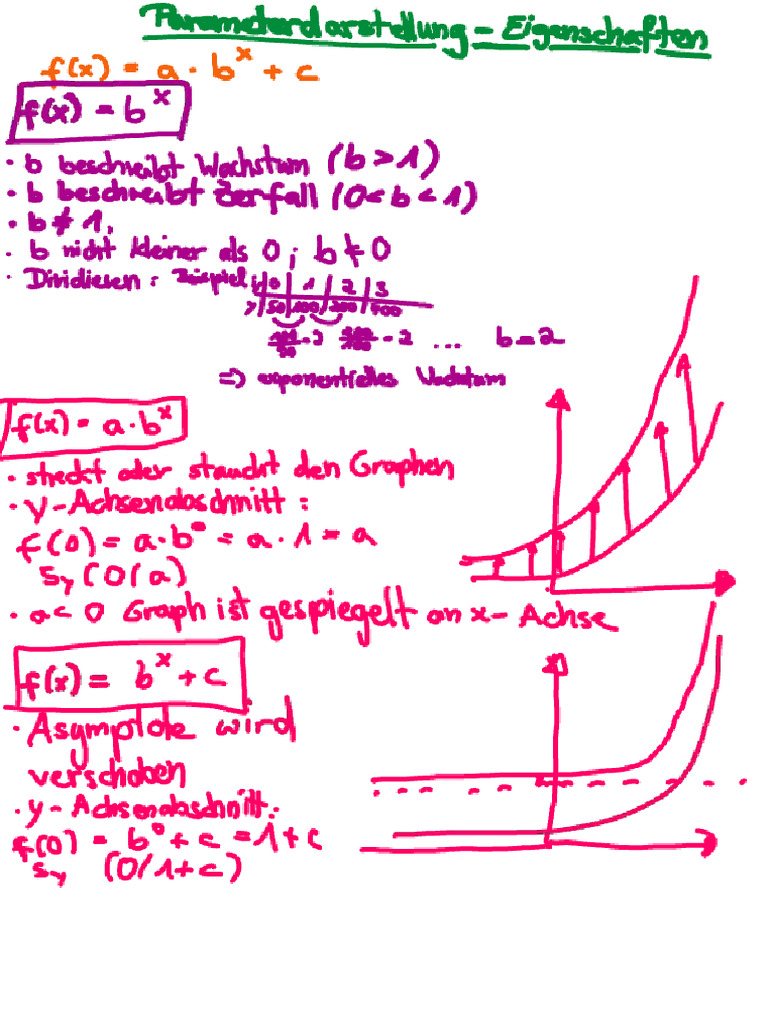 Parameterdarstellung - Eigenschaften
f(x) = a · b^x + c
f(x) = b^x
· b beschreibt Wachstum (b > 1)
· b beschreibt Zerfall (0 < b < 1)
· b ≠ 1,
· b nicht kleiner als 0; b ≠ 0
· Dividieren: Beispiel
0 | 1 | 2 | 3
y | 50 | 100 | 200 | 400
100/50 = 2 = 2 ... b = 2
=> exponentielles Wachstum
f(x) = a · b^x
· streckt oder staucht den Graphen
· y-Achsenabschnitt:
f(0) = a · b^0 = a · 1 = a
Sy (0/a)
· a < 0 Graph ist gespiegelt an x-Achse
f(x) = b^x + c
· Asymptote wird
verschoben
· y-Achsenabschnitt:
f(0) = b^0 + c = 1 + c
Sy (0/1+c)